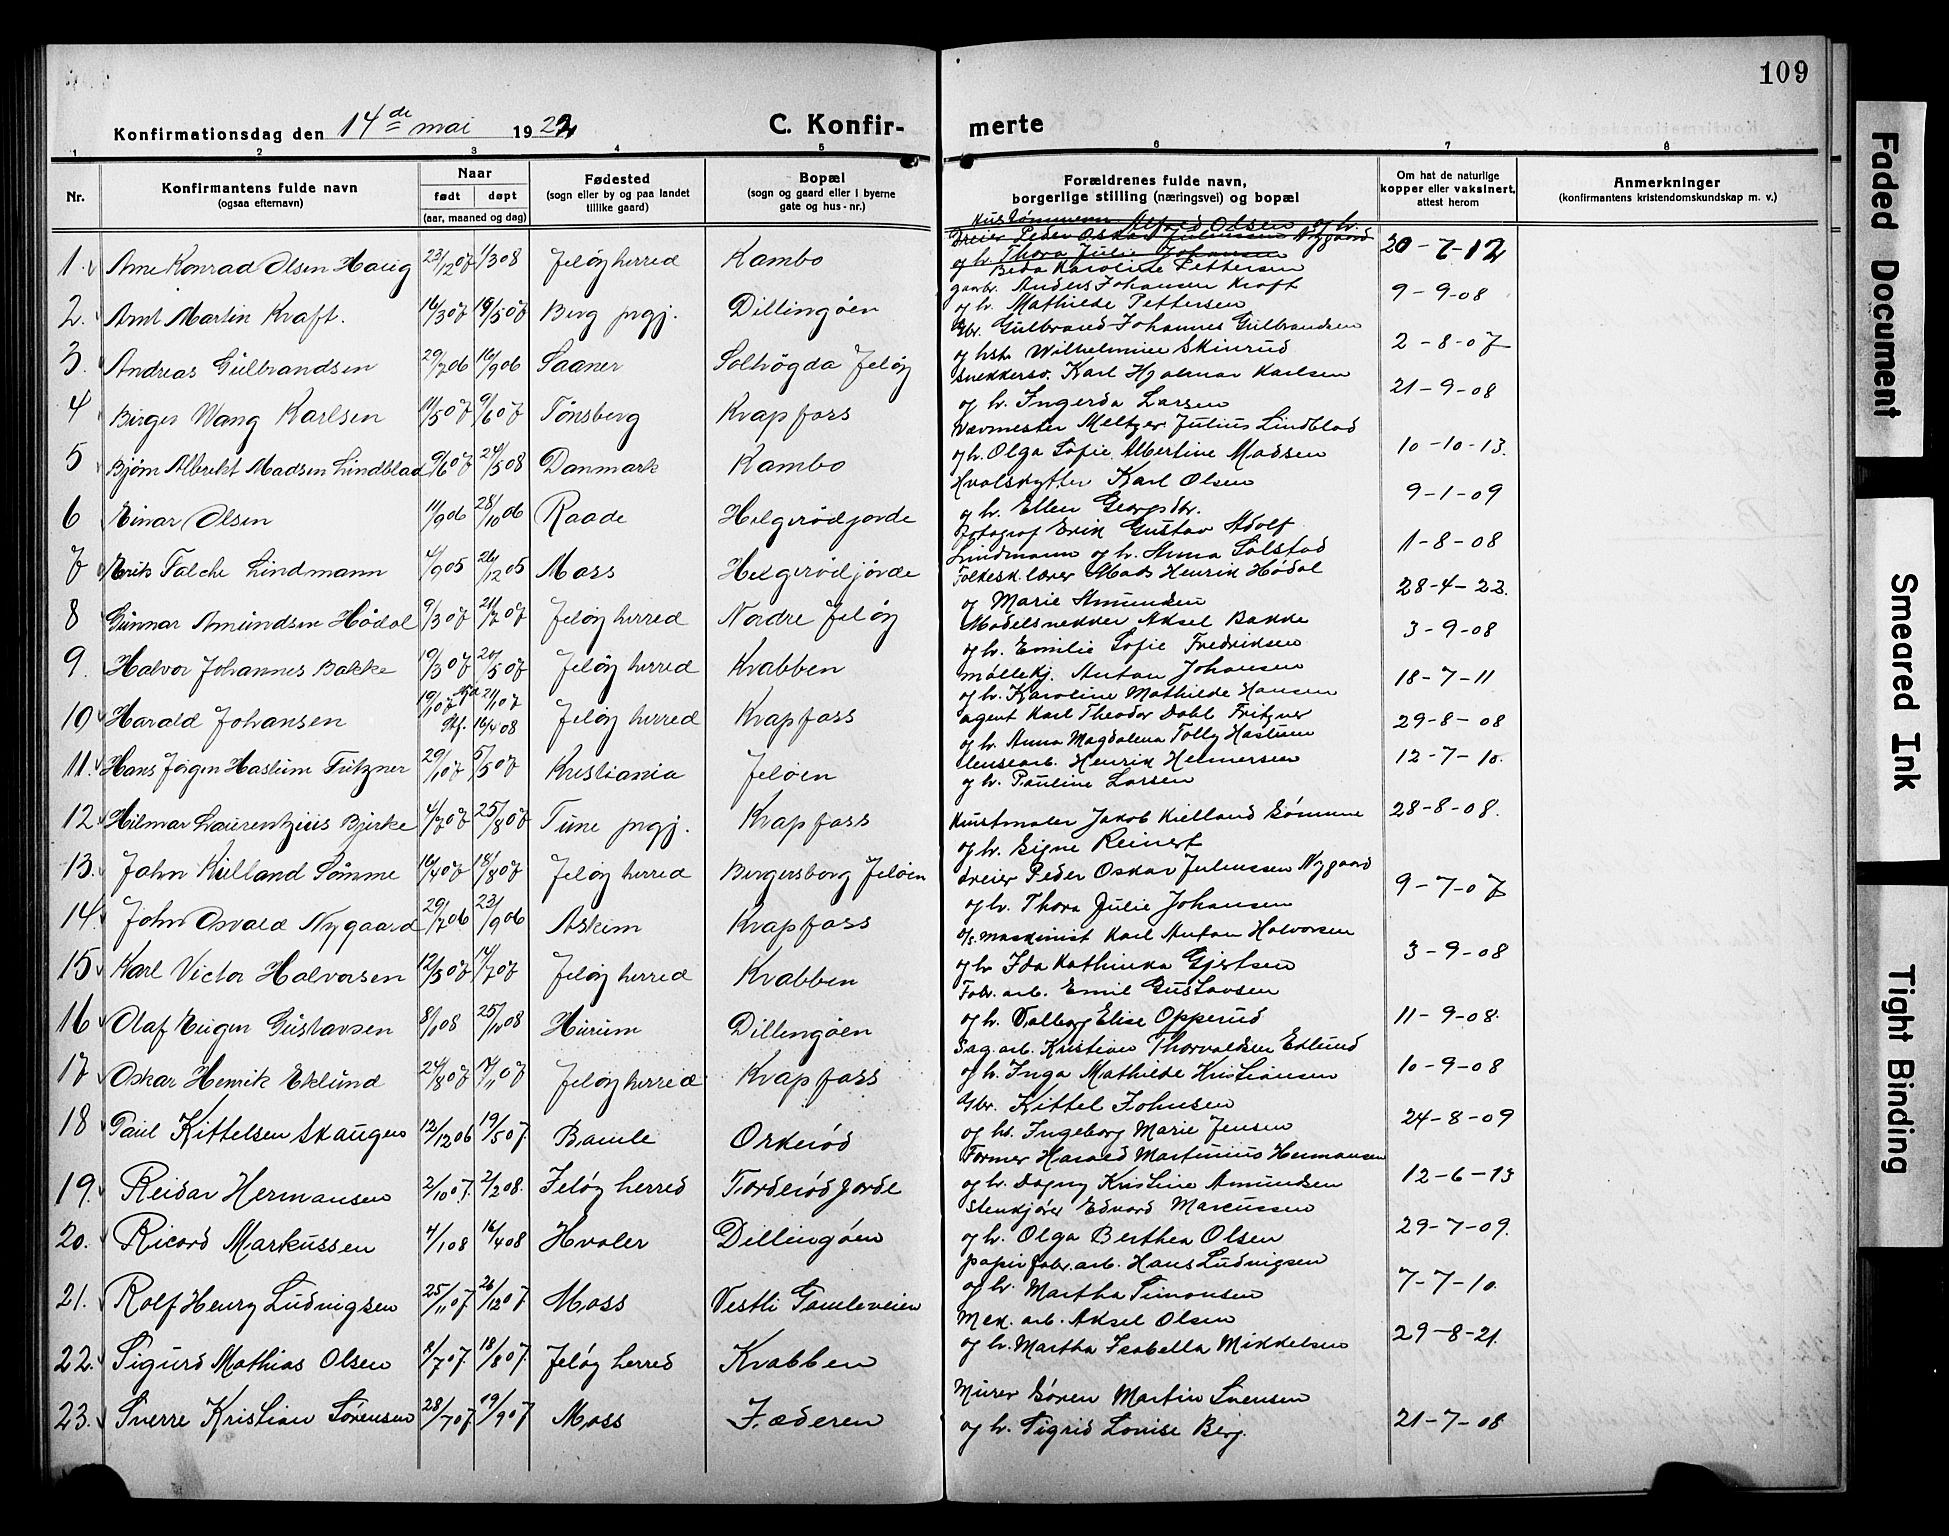 109
Konfirmationsdag den 14de mai 1922
C. Konfir-
merte
1 2 3 4 5 6 7 8
Nr.
Konfirmantens fulde navn
(ogsaa efternavn)
Naar
født døpt
(aar, maaned og dag)
Fødested
(sogn eller by og paa landet
tillike gaard)
Bopæl
(sogn og gaard eller i byerne
gate og hus-nr.)
Forældrenes fulde navn,
borgerlige stilling (næringsvei) og bopæl
Om hat de naturlige
kopper eller vaksinert,
attest herom
Anmerkninger
(konfirmantens kristendomskundskap m. v.)
Alfred Olsen og h.
Dreier Peder Oskar Juliussen Nygaard
og h. Thora Julie Johansen
Beda Karoline Pettersen
1. Arne Konrad Olsen Haug 23/12 07 1/3 08 Jeløy herred Kambo 20-7-12
gaarbr. Anders Johansen Kraft
og h. Mathilde Pettersen
2. Arnt Martin Kraft. 16/3 07 19/5 07 Berg prgj. Dillingøen 9-9-08
Gbr. Gulbrand Johannes Gulbrandsen
og hst. Wilhelmine Skinrud
3. Andreas Gulbrandsen 29/7 06 16/9 06 Saaner Solhøgda Jeløy 2-8-07
Snekkersv. Karl Hjalmar Karlsen
og h. Ingerda Larsen
4 Birger Wang Karlsen 11/5 07 9/6 07 Tønsberg Krapfoss 21-9-08
Vævmester Meltzer Julius Lindblad
og h. Olga Sofie Albertine Madsen
5 Bjørn Albrekt Madsen Lindblad 9/6 07 24/5 08 Danmark Kambo 10-10-13.
Hvalskytter Karl Olsen
og h. Ellen Georgsdtr.
6 Einar Olsen 11/9 06 28/10 06 Raade Helgerødjorde 9-1-09
Fotograf Erik Gustav Adolf
Lindmann og h. Anna Solstad
7 Erik Falche Lindmann 4/9 05 26/12 05 Moss Helgerødjorde 11-8-08
Folkesk.lærer Mads Henrik Hødal
og Marie Amundsen
8 Gunnar Amundsen Hødal 9/3 07 21/7 07 Jeløy herred Nordre Jeløy 28-4-22.
Modelsnekker Aksel Bakke
og h. Emilie Sofie Fredriksen
9. Halvor Johannes Bakke 19/3 07 20/5 07 Jeløy herred Krabben 3-9-08
møllekj. Anton Johansen
og h. Karoline Mathilde Hansen
10 Harald Johansen 19/10 07 21/10 7 16/4 08 Jeløy herred Krapfoss 18-7-11
agent Karl Theodor Dahl Fritzner
og h. Anna Magdalena Tolly Hastum
11. Hans Jørgen Hastum Fritzner 29/1 07 5/5 07 Kristiania Jeløen 29-8-08
Henrik Helmersen
og h. Pauline Larsen
12 Hilmar Laurentzius Bjerke 4/7 07 25/8 07 Tune prgj. Krapfoss 12-7-10.
Kunstmaler Jakob Kielland Sømme
og h. Signe Reinert
13. John Kielland Sømme 16/4 07 18/8 07 Jeløy herred Bergersborg Jeløen 28-8-08.
Dreier Peder Oskar Juliussen Nygaard
og h. Thora Julie Johansen
14. John Osvald Nygaard 29/7 06 23/9 06 Askim Krapfoss 9-7-07
maskinist Karl Anton Halvorsen
og h. Ida Kathinka Gjertsen
15 Karl Victor Halvorsen 12/5 07 14/7 07 Jeløy herred Krabben 3-9-08
Fabr. arb. Emil Gustavsen
og h. Valborg Elise Opperud
16 Olaf Eugen Gustavsen 8/1 08 25/10 08 Hurum Dillengøen 11-9-08.
Sag.arb. Kristian Thorvaldsen Edlund
og h. Inga Mathilde Kristiansen
17 Oskar Henrik Eklund 24/8 07 17/11 07 Jeløy herred Krapfoss 10-9-08
Gbr. Kittel Johnsen
og h. Ingeborg Marie Jensen
18 Paul Kittelsen Skaugen 12/12 06 19/5 07. Bamle Orkerød 24-8-09
Former Harald Martinius Hermansen
og h. Dagny Kristine Amundsen
19. Reidar Hermansen 2/10 07. 2/2 08. Jeløy herred Torderødjorde 12-6-13
Stenkjører Edvard Marcussen
og h. Olga Berthea Olsen
20. Ricard Markussen 4/1 08 16/4 08 Hvaler Dillingøen 29-7-09.
papir fabr. arb. Hans Ludvigsen
og h. Martha Simonsen
21. Rolf Henry Ludvigsen 25/11 07. 26/12 07. Moss Vestli Gamleveien 7-7-10.
Mek. arb. Aksel Olsen
og h. Martha Isabella Mikkelsen
22. Sigurd Mathias Olsen 8/7 07. 18/8 07. Jeløy herred Krabben 29-8-21.
Murer Søren Martin Svensen
og h. Sigrid Louise Berg.
23. Sverre Kristian Sørensen 28/7 07. 19/9 07 Moss Fæderen 21-7-08
Faded Document
Smeared Ink
Tight Binding